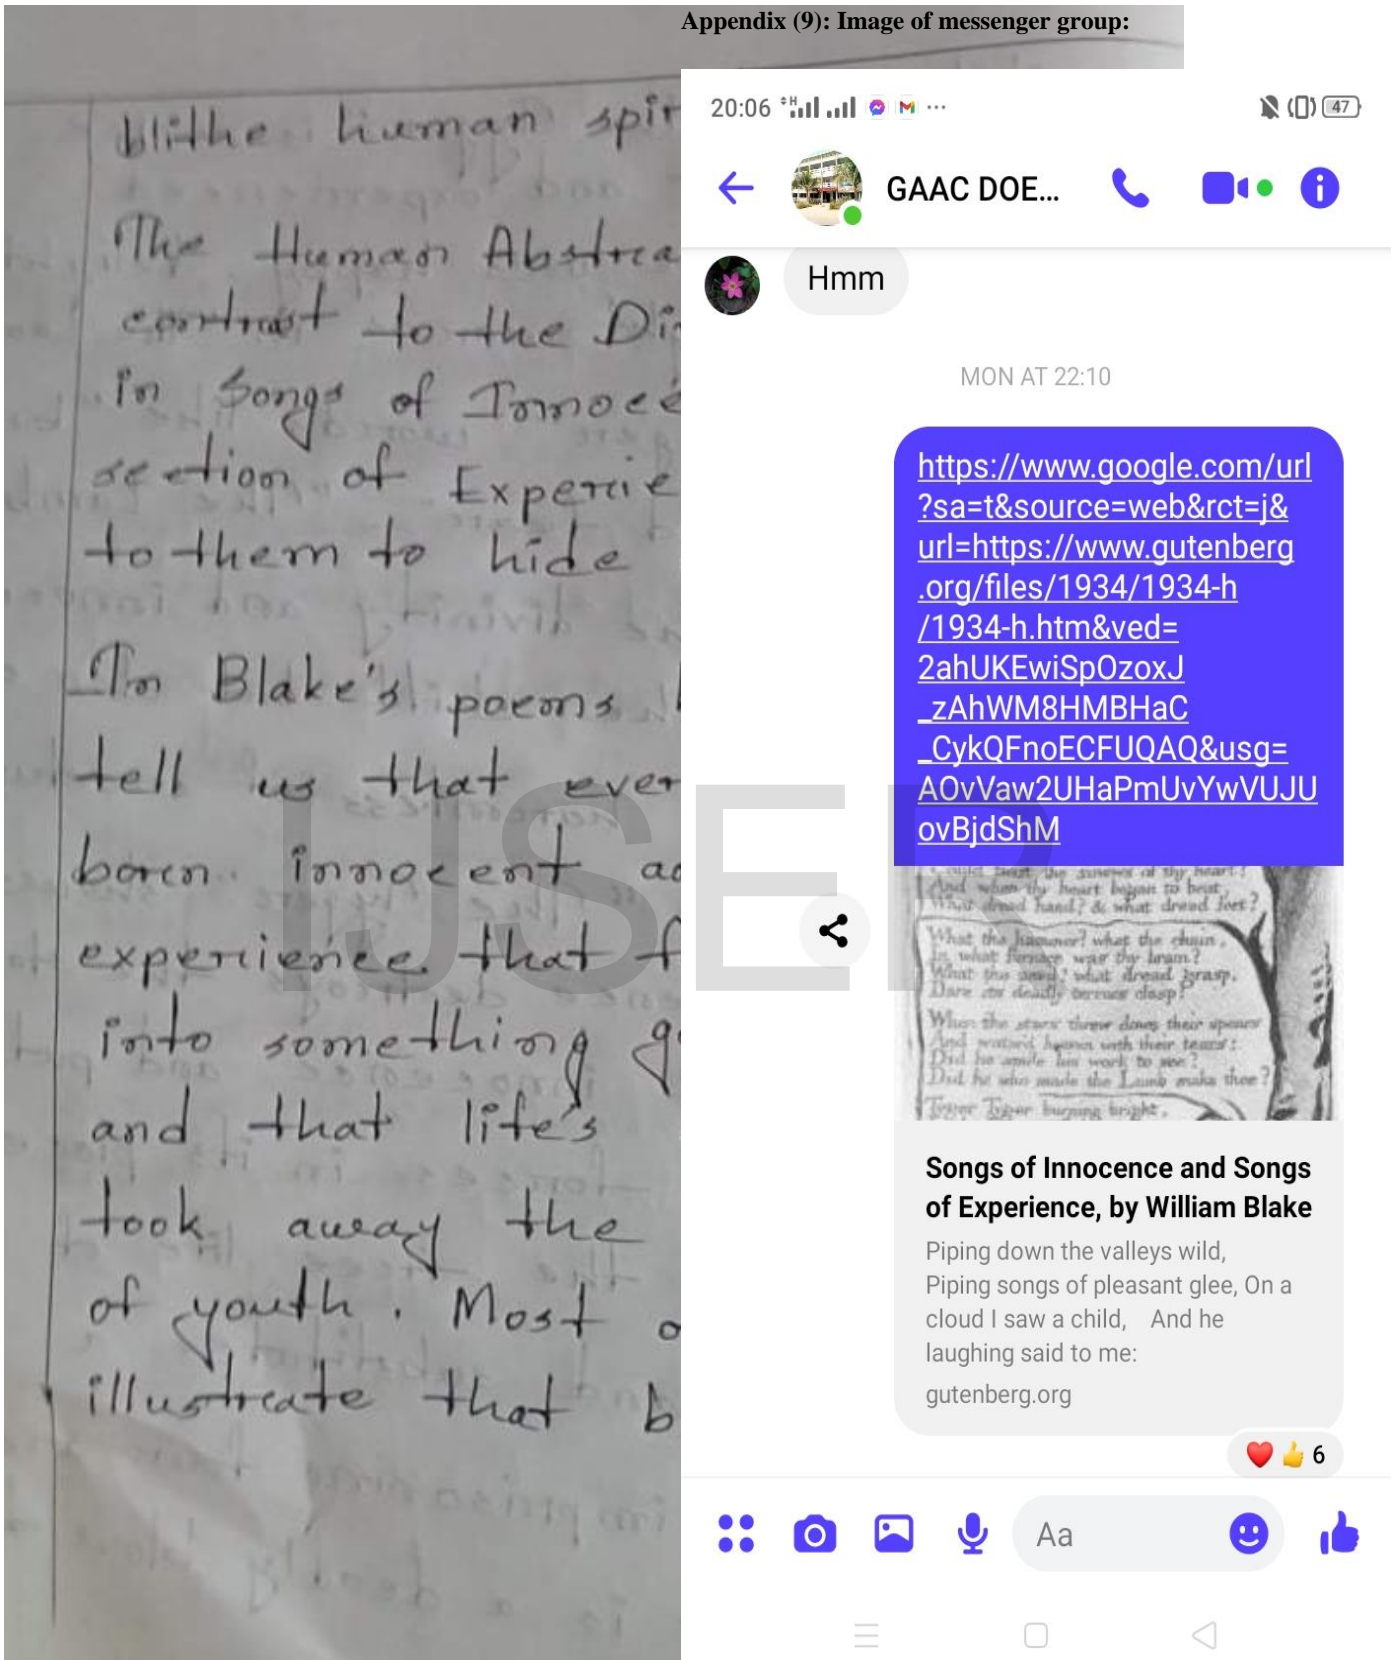 Appendix (9): Image of messenger group:
blithe human spir
The Human Abstrea
contrast to the Di
in Songs of Innoce
section of Experie
to them to hide
In Blake's poems
tell us that ever
boren innocent ac
experience that f
into something g
and that life's
took away the
of youth. Most o
illustreate that b
20:06
47
GAAC DOE...
Hmm
MON AT 22:10
https://www.google.com/url
?sa=t&source=web&rct=j&
url=https://www.gutenberg
.org/files/1934/1934-h
/1934-h.htm&ved=
2ahUKEwiSpOzoxJ
_zAhWM8HMBHaC
_CykQFnoECFUQAQ&usg=
AOvVaw2UHaPmUvYwVUJU
ovBjdShM
And when thy heart began to beat,
What dread hand? & what dread feet?
What the hammer? what the chain,
In what furnace was thy brain?
What the anvil? what dread grasp,
Dare its deadly terrors clasp!
When the stars threw down their spears
And water'd heaven with their tears:
Did he smile his work to see?
Did he who made the Lamb make thee?
Tyger Tyger burning bright,
Songs of Innocence and Songs
of Experience, by William Blake
Piping down the valleys wild,
Piping songs of pleasant glee, On a
cloud I saw a child, And he
laughing said to me:
gutenberg.org
6
Aa
IJSER